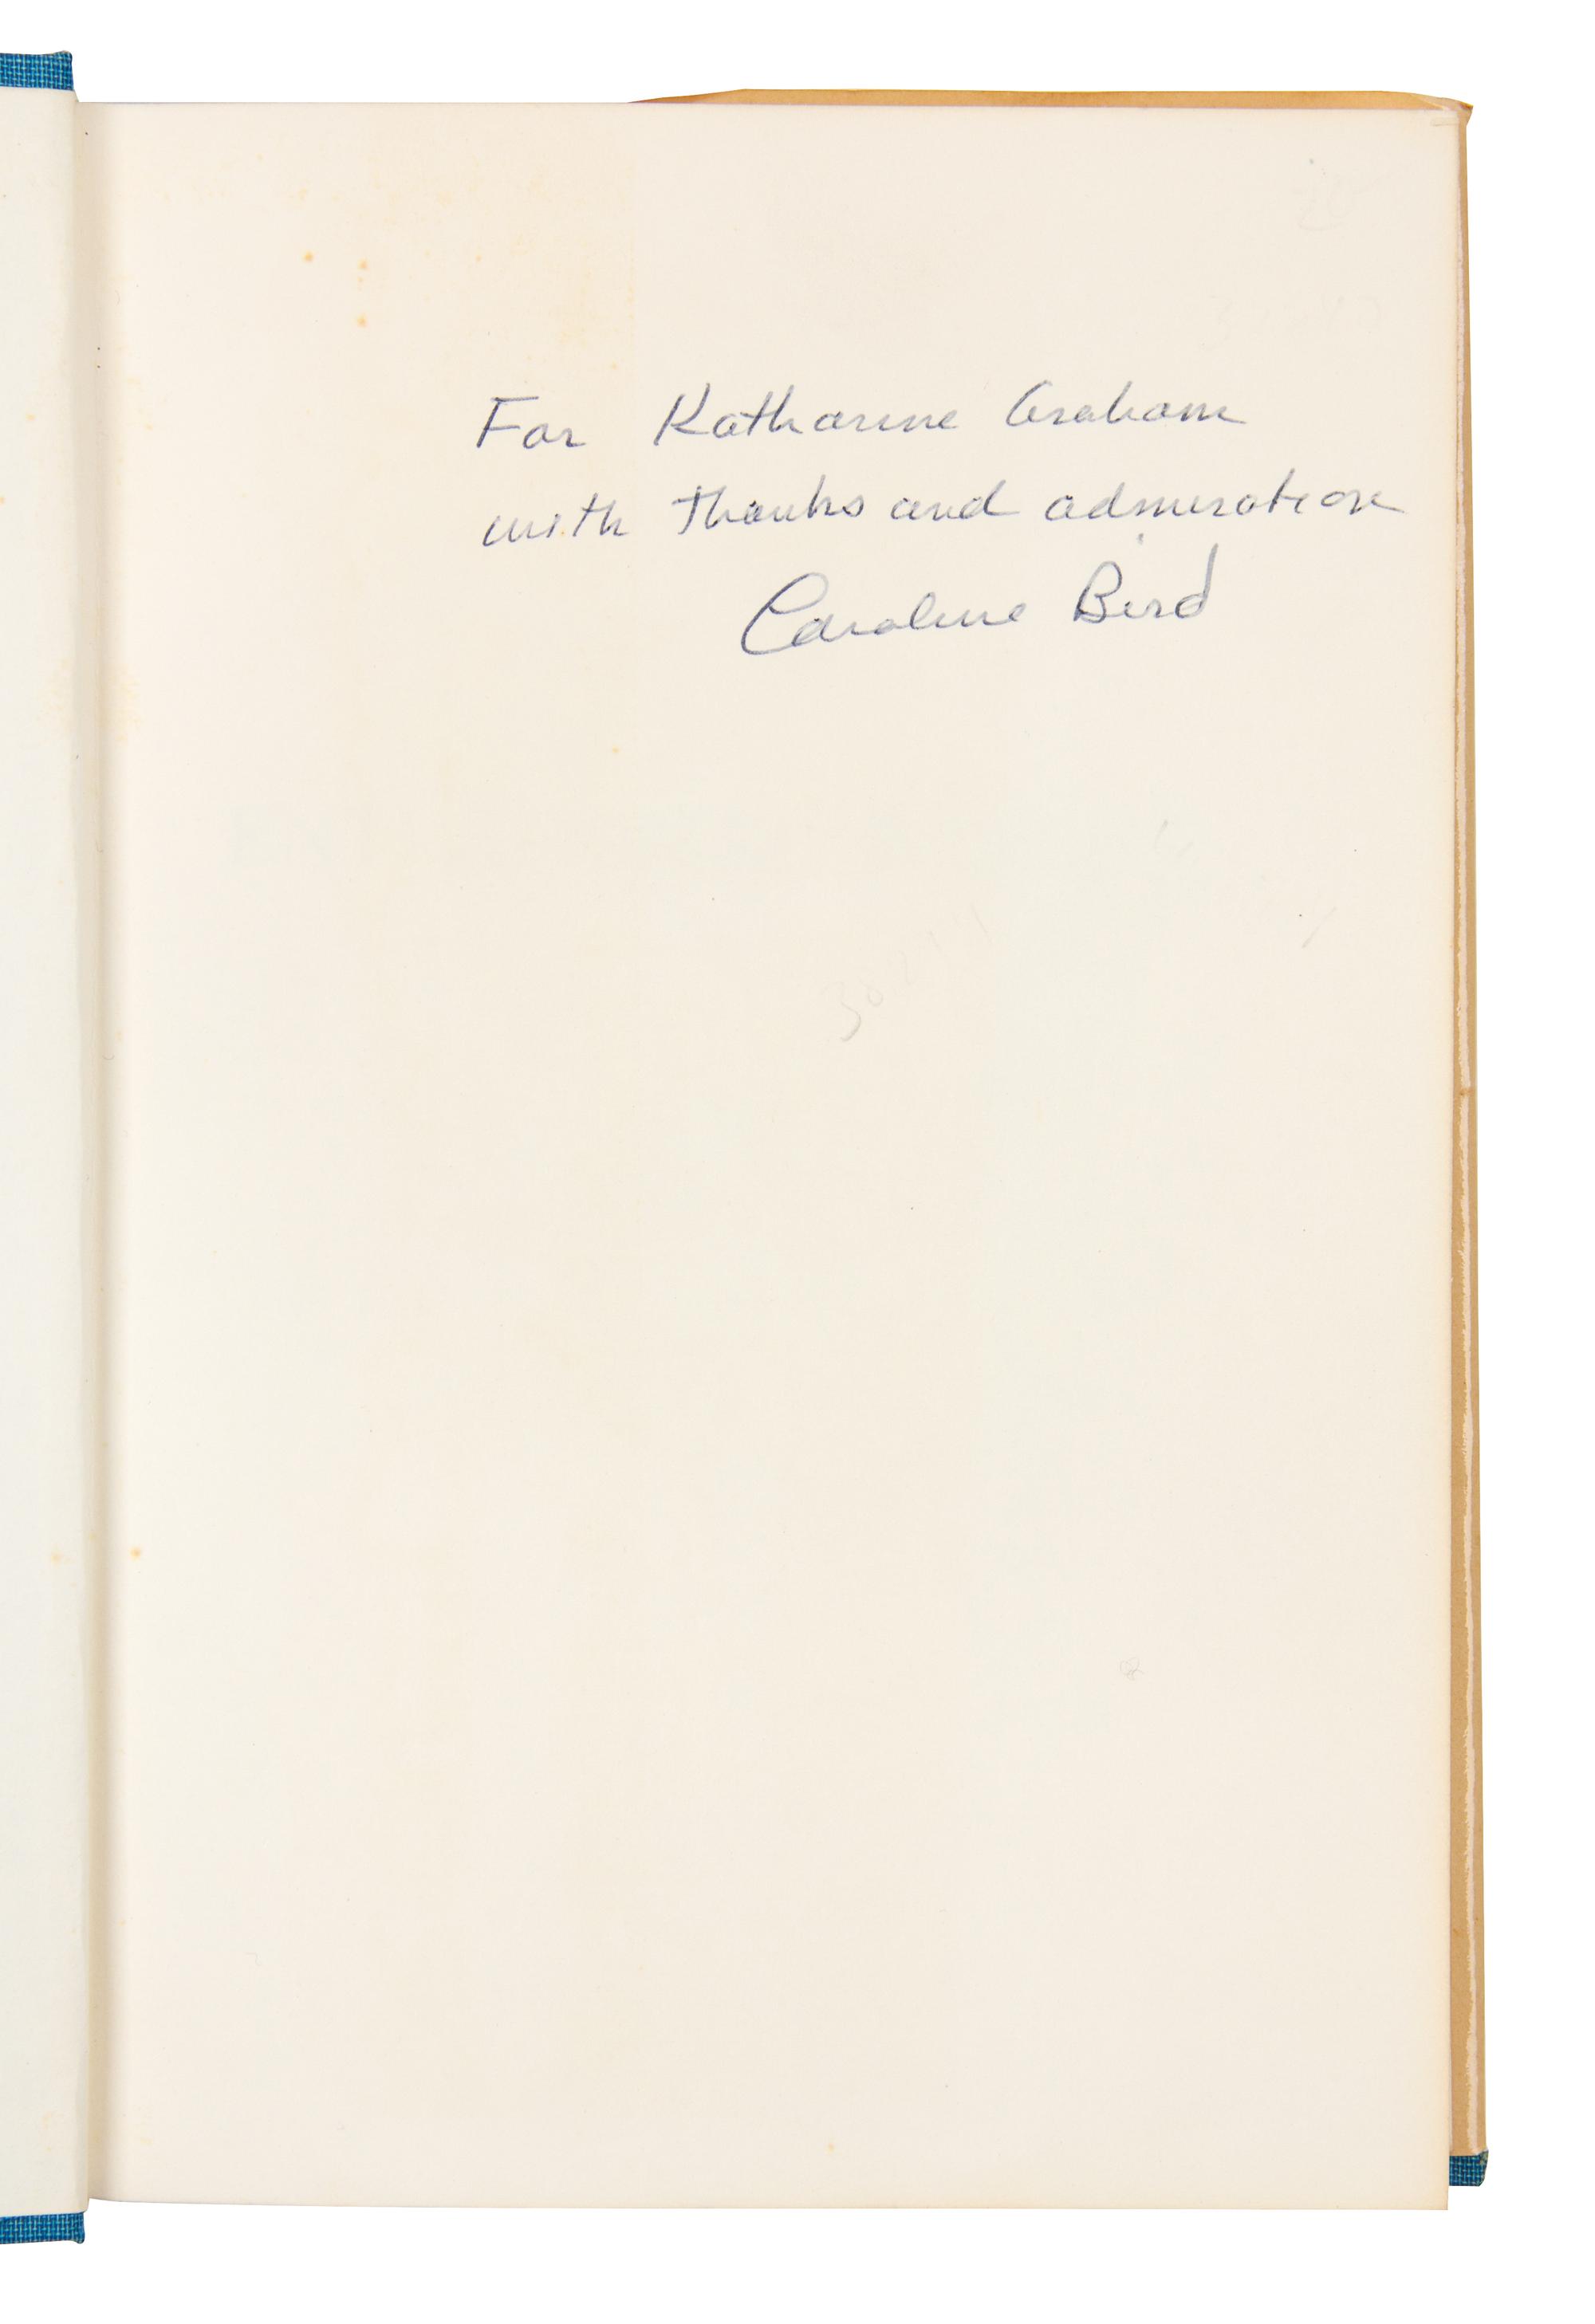 For Katharine Graham
with thanks and admiration
Caroline Bird